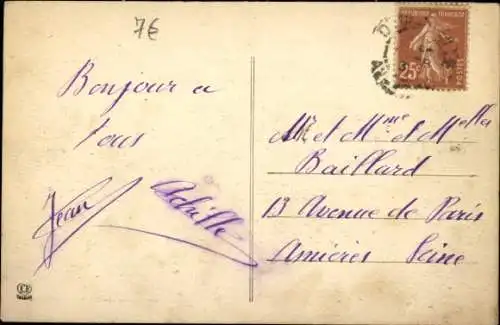 7€
Bonjour a
tous
Jean
Achille
REPUBLIQUE FRANCAISE
25c
POSTES
Mr et Mme et Melles
Baillard
13 Avenue de Paris
Asnières Seine